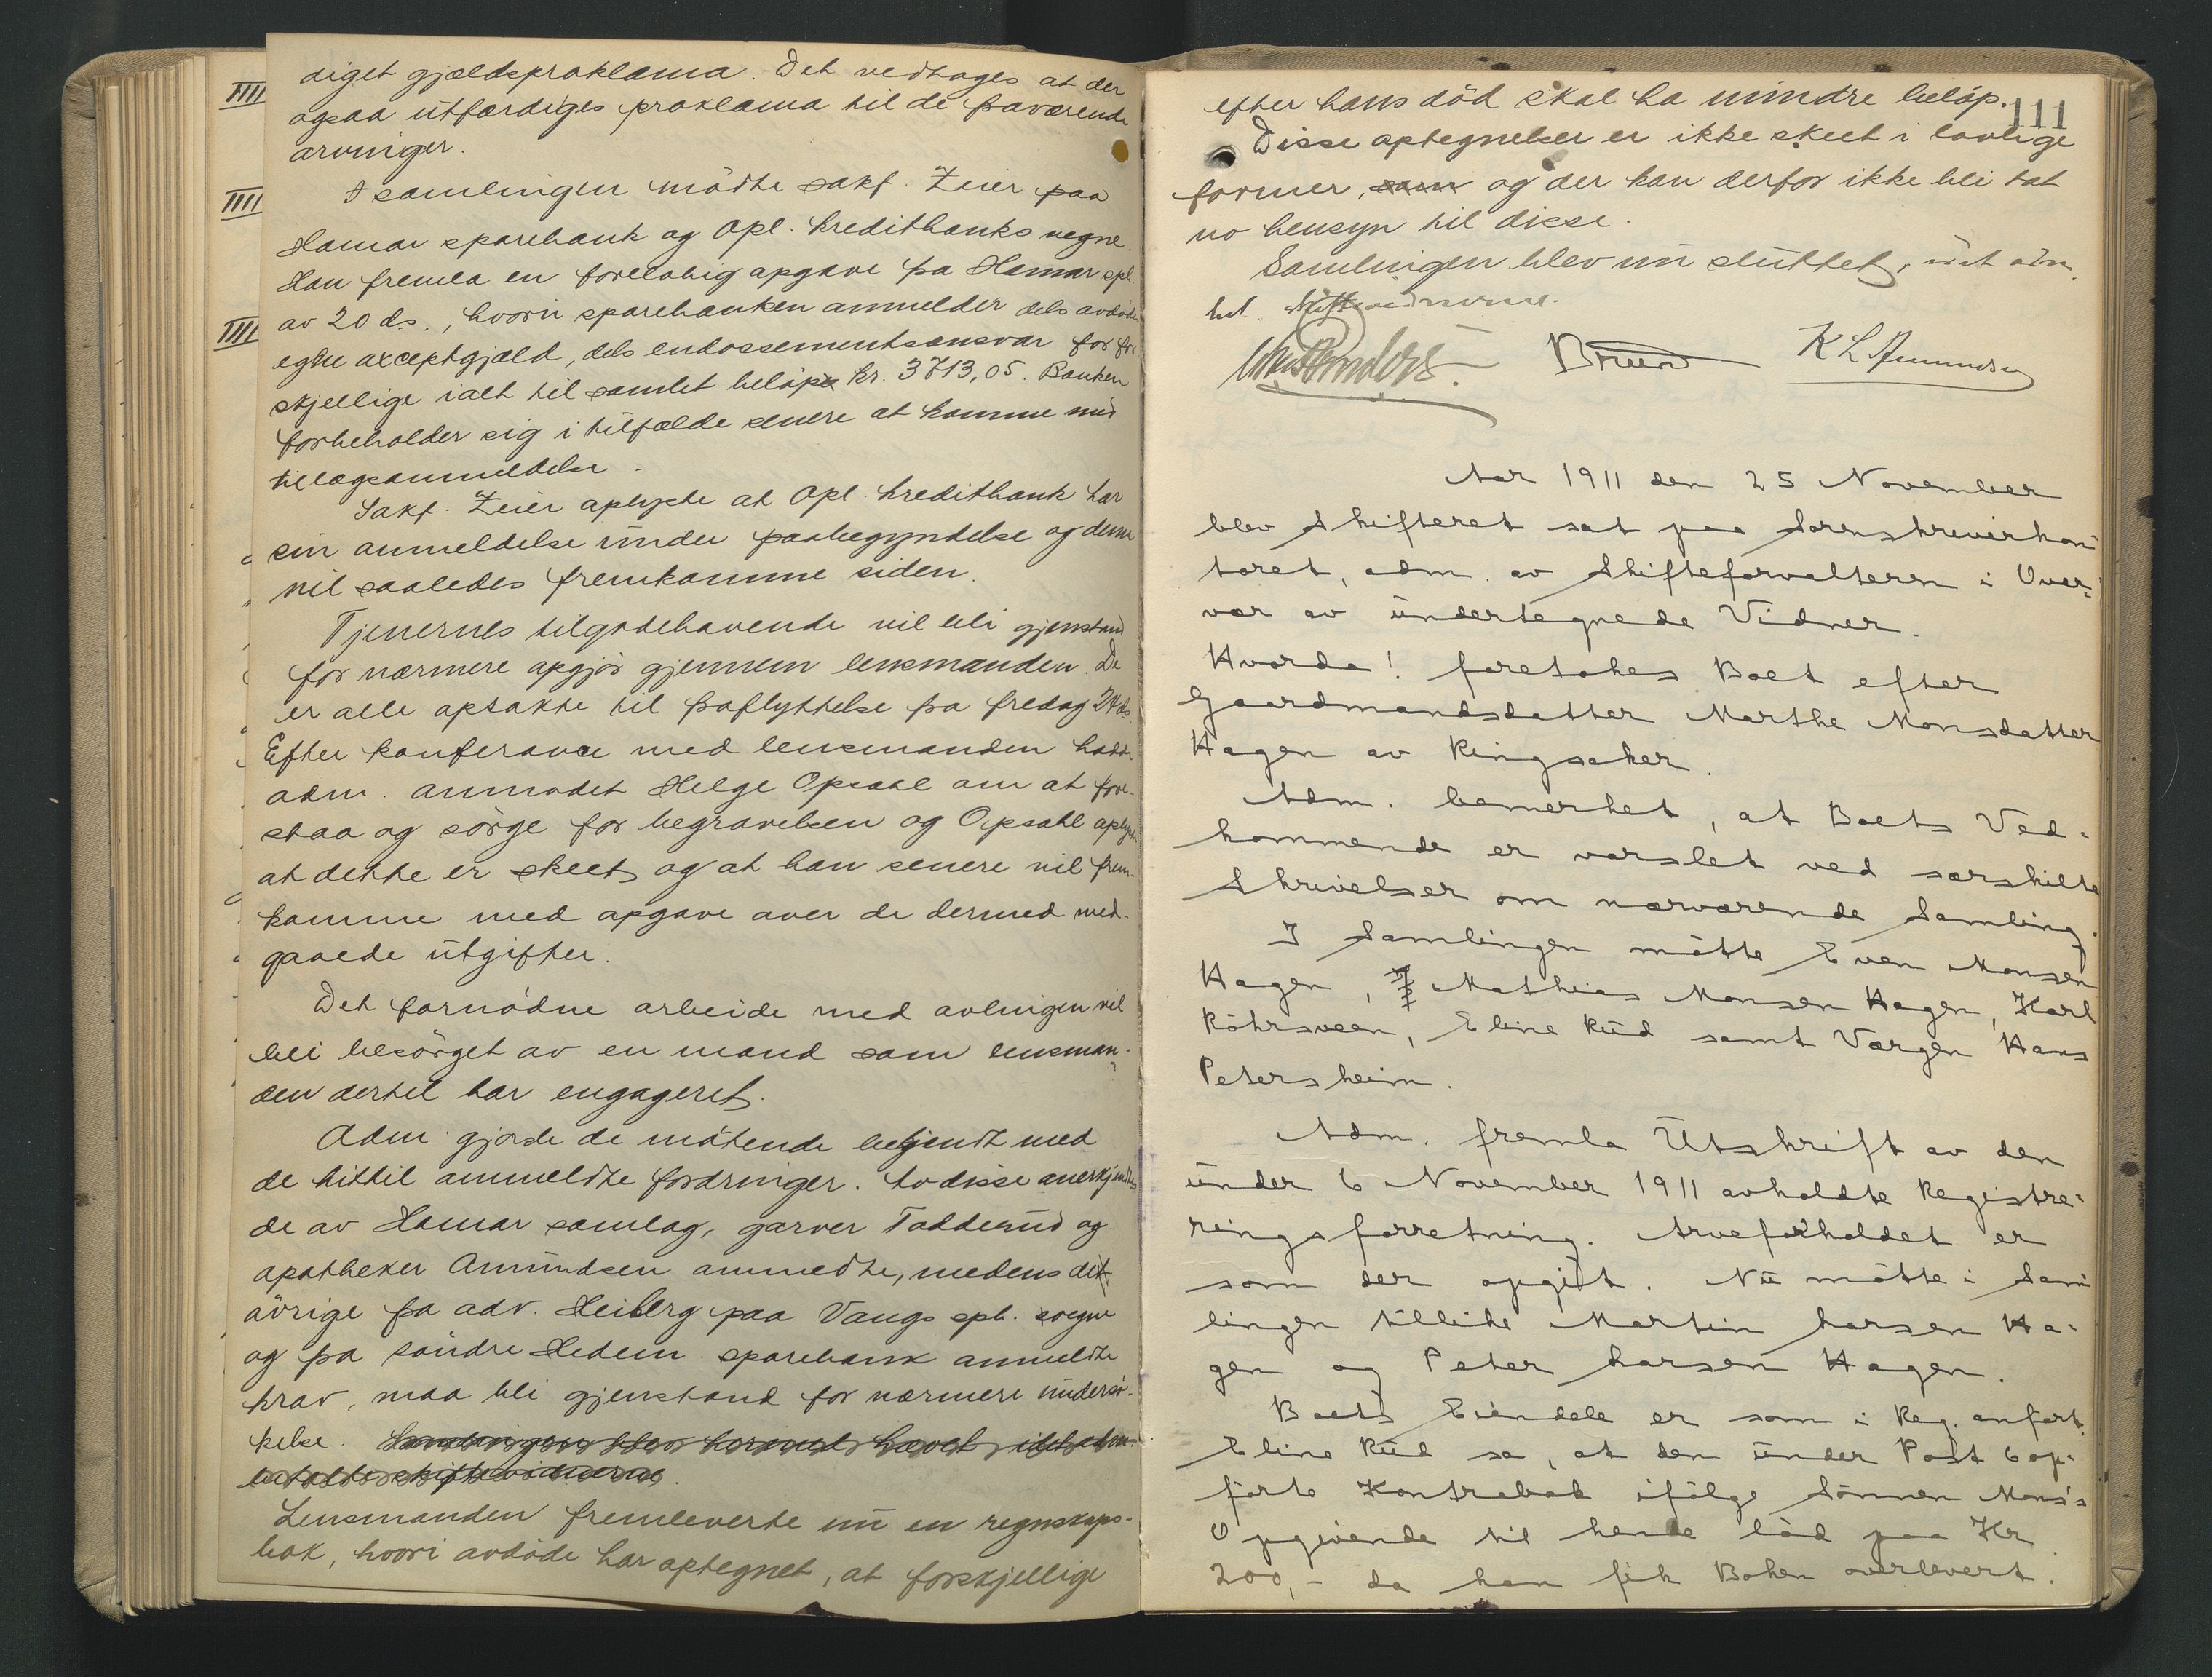 diget gjældsproklama. Det vedtoges at der
ogsaa utfærdiges proklama til de fraværende
arvinger.
I samlingen mödte sakf. Zeier paa
Hamar sparebank og Opl. Kreditbanks vegne.
Han fremla en forelobig opgave fra Hamar spb.
av 20 ds., hvori sparebanken anmelder dels avdödes
egne axceptgjæld, dels endossementsansvar for for-
skjellige ialt til samlet belöp kr. 3713,05. Banken
forbeholder sig i tilfælde senere at komme med
tillægsanmeldelse.
Sakf. Zeier oplyste at Opl. Kreditbank har
sin anmeldelse under paabegyndelse og denne
vil saaledes fremkomme siden.
Tjenernes tilgodehavende vil bli gjenstand
for nærmere opgjör gjennem lensmanden. De
er alle opsakte til fraflyttelse fra fredag 24 ds
Efter konferance med lensmanden hadde
adm. anmodet Helge Opsahl om at fore-
staa og sörge for begravelsen og Opsahl oplyste
at dette er skeet og at han senere vil frem-
komme med opgave over de dermed med-
gaaede utgifter.
Det fornödne arbeide med avlingen vil
bli besörget av en mand som lensman-
den dertil har engageret.
Adm. gjorde de mötende bekjendt med
de hittil anmeldte fordringer. Av disse anerkjendtes
de av Hamar samlag, garver Todderud og
apotheker Amundsen anmeldte, medens det
övrige fra adv. Heiberg paa Vangs spb. vegne
og fra söndre Hedem. sparebank anmeldte
krav, maa bli gjenstand for nærmere undersö-
kelse. Samlingen blev hermed hævet, idet adm.
betalte skiftevidnerne.
Lensmanden fremleverte nu en regnskaps-
bok, hvori avdöde har optegnet, at forskjellige
111
efter hans död skal ha mindre belöp.
Disse optegnelser er ikke skeet i lovlige
former, som og der kan derfor ikke bli tat
no hensyn til disse.
Samlingen blev nu sluttet, idet adm.
bet. skiftevidnerne.
Bruun K L Amundsen
Aar 1911 den 25 November
blev Skifteret sat paa Sorenskriverkon-
toret, adm. av Skifteforvalteren i Over-
vær av undertegnede Vidner.
Hvorda! foretokes Boet efter
Gaardmandsdatter Marthe Monsdatter
Hagen av Ringsaker.
Adm. bemerket, at Boets Ved-
kommende er varslet ved særskilte
Skrivelser om nærværende Samling.
I Samlingen mötte Even Monsen
Hagen, Mathias Monsen Hagen, Karl
Röhrsveen, Eline Rud samt Værgen Hans
Petersheim.
Adm. fremla Utskrift av den
under 6 November 1911 avholdte Registre-
ringsforretning. Arveforholdet er
som der opgit. Nu mötte i Sam-
lingen tillike Martin Larsen Ha-
gen og Peter Larsen Hagen.
Boets Eiendele er som i Reg. anfört.
Eline Rud sa, at den under Post 6 op-
förte Kontrabok ifölge Sönnen Mons's
Opgivende til hende löd paa Kr
200,- da han fik Boken overlevert.